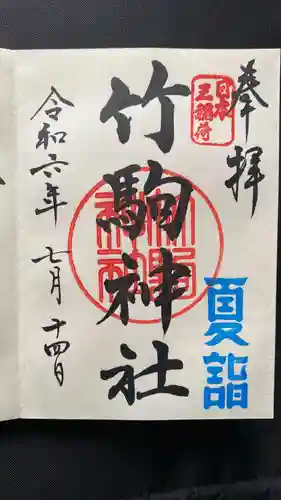 奉拝
日本
三稲荷
夏詣
竹駒神社
令和六年 七月 十四日